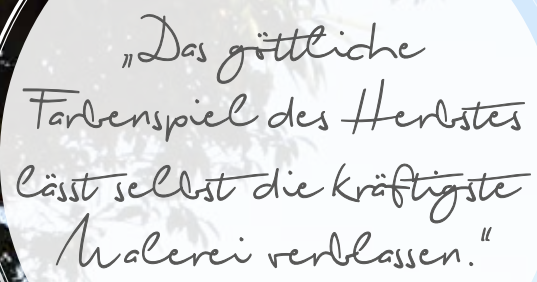 „Das göttliche
Farbenspiel des Herbstes
lässt selbst die kräftigste
Malerei verblassen.“